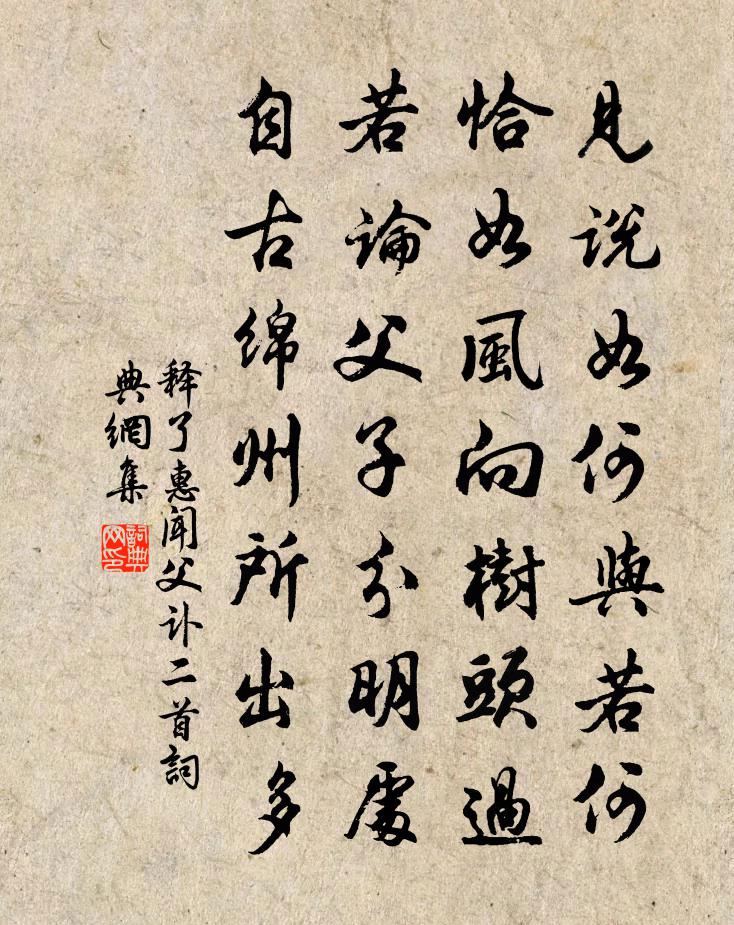 見説如何與若何
恰如風向樹頭過
若論父子分明處
自古綿州所出多
释了惠聞父訃二首詞
典網集
詞典
网印